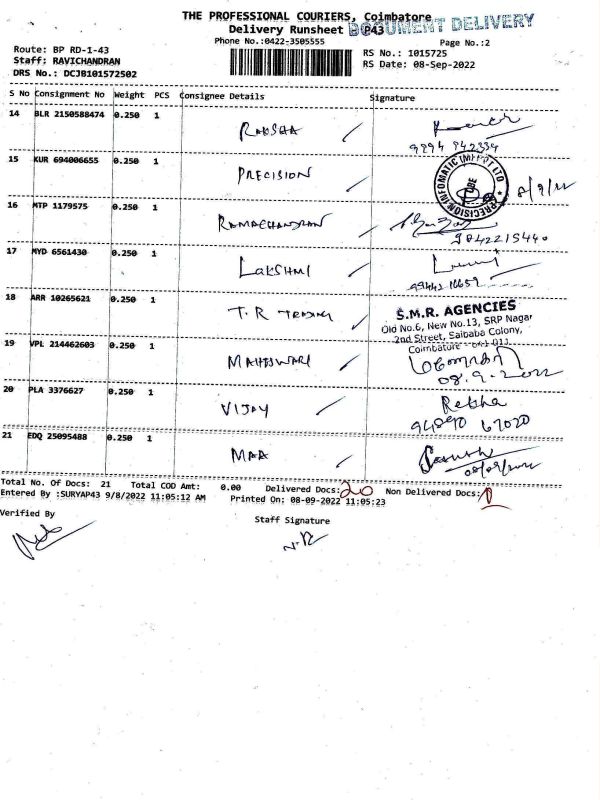 THE PROFESSIONAL COURIERS, Coimbatore
Delivery Runsheet @P43
DOCUMENT DELIVERY
Phone No.:0422-3505555
Page No.:2
Route: BP RD-1-43
RS No.: 1015725
Staff: RAVICHANDRAN
RS Date: 08-Sep-2022
DRS No.: DCJB101572502
S No Consignment No Weight PCS Consignee Details Signature
14 BLR 2150588474 0.250 1 RAKSHA
9894 942334
15 KUR 694006655 0.250 1 PRECISION
PRECISION INFOMATIC (M) PVT LTD
8/9/22
16 MTP 1179575 0.250 1 RAMACHANDRAN
9842215440
17 MYD 6561430 0.250 1 LAKSHMI
18 ARR 10265621 0.250 1 T.R TRADING
S.M.R. AGENCIES
Old No.6, New No.13, SRP Nagar
2nd Street, Saibaba Colony,
Coimbatore - 641 011
19 VPL 214462603 0.250 1 MAHESWARI
08.9.2022
20 PLA 3376627 0.250 1 VIJAY
Rekha
94890 67020
21 EDQ 25095488 0.250 1 MAA
08/09/2022
Total No. Of Docs: 21 Total COD Amt: 0.00 Delivered Docs: 20 Non Delivered Docs: 1
Entered By :SURYAP43 9/8/2022 11:05:12 AM Printed On: 08-09-2022 11:05:23
Verified By
Staff Signature